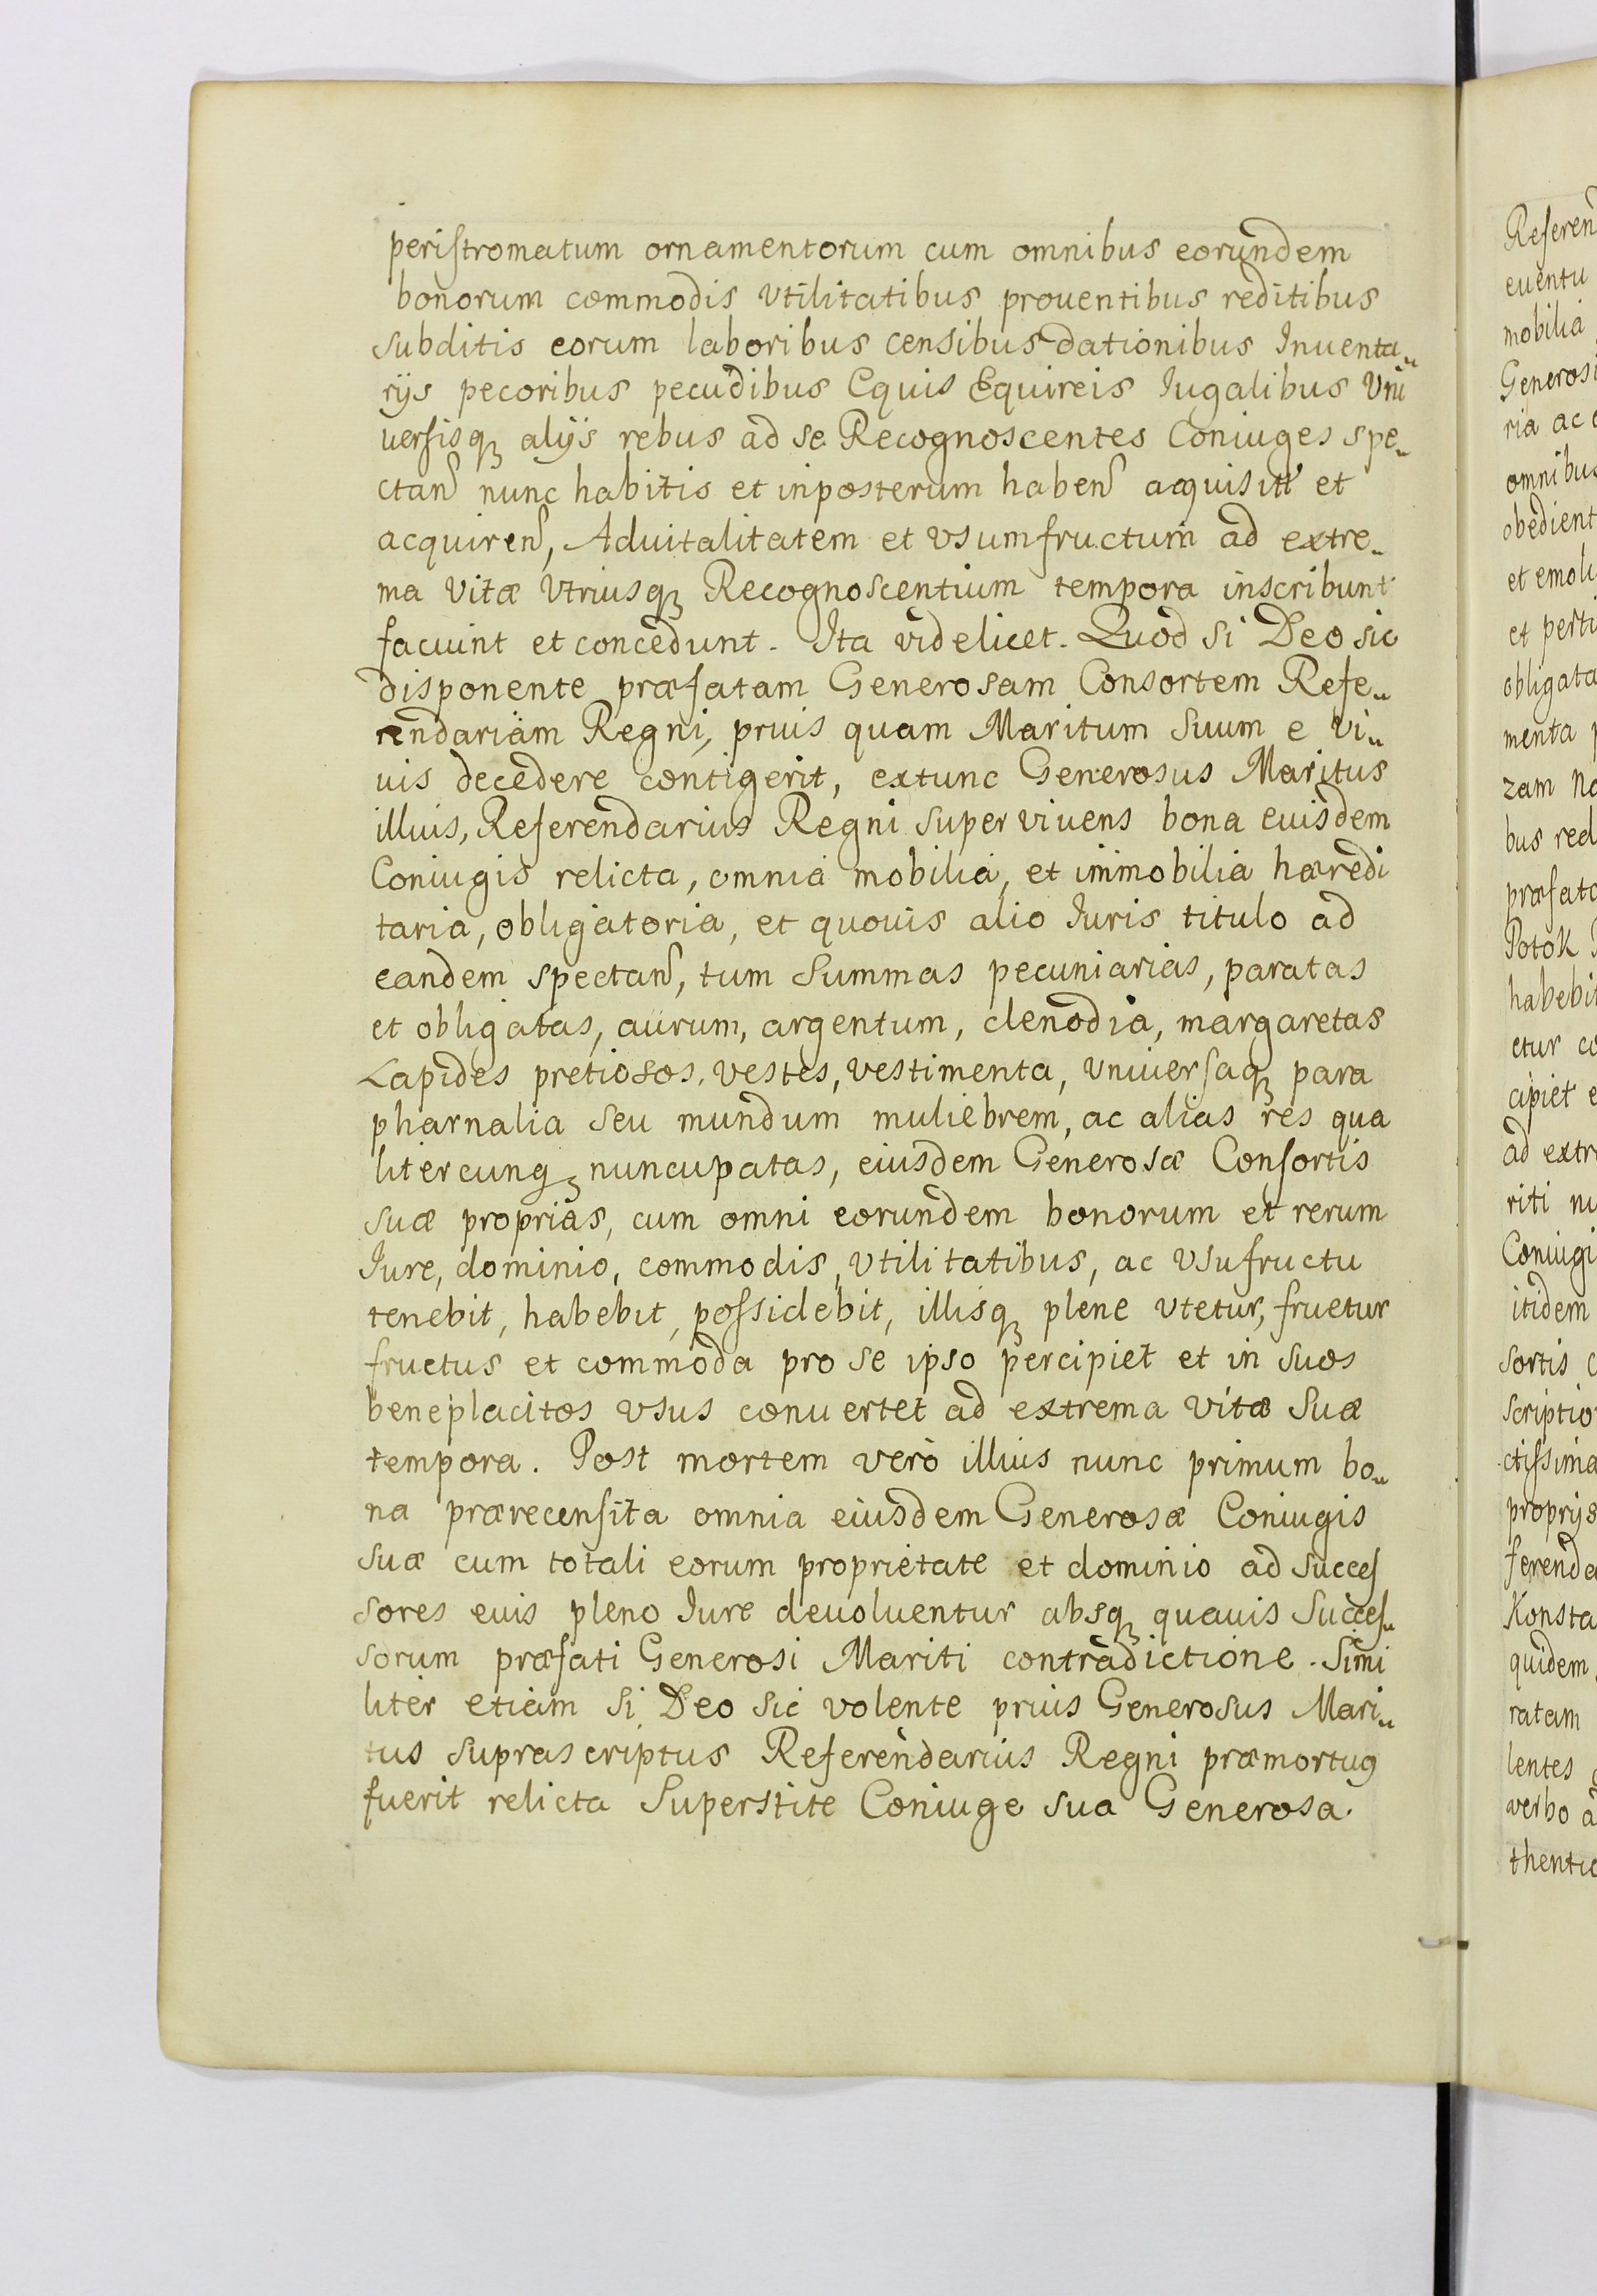 periſtromatum ornamentorum cum omnibus eorundem
bonorum commodis vtilitatibus prouentibus reditibus
subditis eorum laboribus censibus dationibus Inuenta„
rijs pecoribus pecudibus Equis Equireis Iugalibus Vni
uerſisqꝫ alijs rebus ad se Recognoscentes Coniuges spe„
ctan̄ nunc habitis et inposterum haben̄ acquisit̄ et
acquiren̄, Aduitalitatem et vsumfructum ad extre„
ma vitæ Vtriusqꝫ Recognoscentium tempora inscribunt
faciunt et concedunt. Ita videlicet. Quod si Deo sic
disponente præfatam Generosam Consortem Refe„
rendariam Regni, prius quam Maritum Suum e vi„
uis decedere contigerit, extunc Generosus Maritus
illius, Referendarius Regni supervivens bona euisdem
Coniugis relicta, omnia mobilia, et immobilia hæredi
taria, obligatoria, et quouis alio Iuris titulo ad
eandem spectan̄, tum Summas pecuniarias, paratas
et obligatas, aurum, argentum, clenodia, margaretas
Lapides pretiosos, vestes, vestimenta, vniuerſaqꝫ para
pharnalia seu mundum muliebrem, ac alias res qua
litercunqꝫ nuncupatas, eiusdem Generosæ Conſortis
suæ proprias, cum omni eorundem bonorum et rerum
Iure, dominio, commodis, vtilitatibus, ac vsufructu
tenebit, habebit, poſsidebit, illisqꝫ plene vtetur, fruetur
fructus et commoda pro se ipso percipiet et in suos
beneplacitos vsus conuertet ad extrema vitæ suæ
tempora. Post mortem verò illius nunc primum bo„
na prærecenſita omnia eiusdem Generosæ Coniugis
suæ cum totali eorum proprietate et dominio ad Succeſ
sores euis pleno Iure deuoluentur absqꝫ quauis Succeſ„
sorum præfati Generosi Mariti contradictione. Simi
liter etiam si Deo sic volente prius Generosus Mari„
tus suprascriptus Referendarius Regni præmortuꝰ
fuerit relicta Superstite Coniuge sua Generosa.
Referen
euentu
mobilia
Generosi
ria ac
omnibus
obedient
et emolu
et perti
obligata
menta
zam
bus red
præfato
Potok
habebit
etur co
cipiet e
ad extr
riti nu
Coniugi
itidem
sortis c
scriptio
ctiſsima
proprijs
ferenda
Konsta
quidem
ratam
lentes
verbo a
thentic